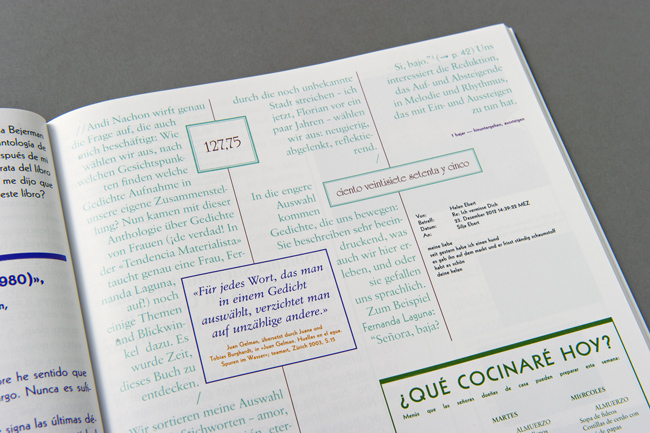 a Bejerman
antología de
espués de mi
rata del libro
me dijo que
este libro?
980)»,
re he sentido que
rgo. Nunca es sufi-
signa las últimas dé-
//Andi Nachon wirft genau
die Frage auf, die auch
mich beschäftigt: Wie
wählen wir aus, nach
welchen Gesichtspunk-
ten finden welche
Gedichte Aufnahme in
unsere eigene Zusammenstel-
lung? Nun kamen mit dieser
Anthologie über Gedichte
von Frauen (¡de verdad! In
der «Tendencia Materialista»
taucht genau eine Frau, Fer-
nanda Laguna,
auf!) noch
einige Themen
und Blickwin-
kel dazu. Es
wurde Zeit,
dieses Buch zu
entdecken.
/
Wir sortieren meine Auswahl
Stichworten – amor,
127,75
«Für jedes Wort, das man
in einem Gedicht
auswählt, verzichtet man
auf unzählige andere.»
Juan Gelman, übersetzt durch Juana und
Tobias Burghardt, in «Juan Gelman, Huellas en el agua.
Spuren im Wasser»; teamart, Zürich 2003, S.15
durch die noch unbekannte
Stadt streichen - ich
jetzt, Florian vor ein
paar Jahren - wählen
wir aus: neugierig,
abgelenkt, reflektie-
rend.
/
In die engere
Auswahl
kommen
Gedichte, die uns bewegen:
Sie beschreiben sehr beein-
druckend, was
auch wir hier er-
leben, und oder
sie gefallen
uns sprachlich.
Zum Beispiel
Fernanda Laguna:
“Señora, baja?
Si, bajo.”¹ (→ p. 42) Uns
interessiert die Reduktion,
das Auf- und Absteigende
in Melodie und Rhythmus,
das mit Ein- und Aussteigen
zu tun hat.
1 bajar — heruntergehen, aussteigen
ciento veintisiete setenta y cinco
Von: Helen Ebert
Betreff: Re: Ich vermisse Dich
Datum: 23. Dezember 2012 14:39:22 MEZ
An: Silja Ebert
meine liebe
seit gestern habe ich einen hund
es geh ihn auf dem markt und er frisst ständig schaumstoff
habt es schön
deine helen
¿QUÉ COCINARÉ HOY?
Menús que las señoras dueñas de casa pueden preparar esta semana:
MARTES
ALMUERZO
MIéRCOLES
ALMUERZO
Sopa de fideos
Costillas de cerdo con
de papas